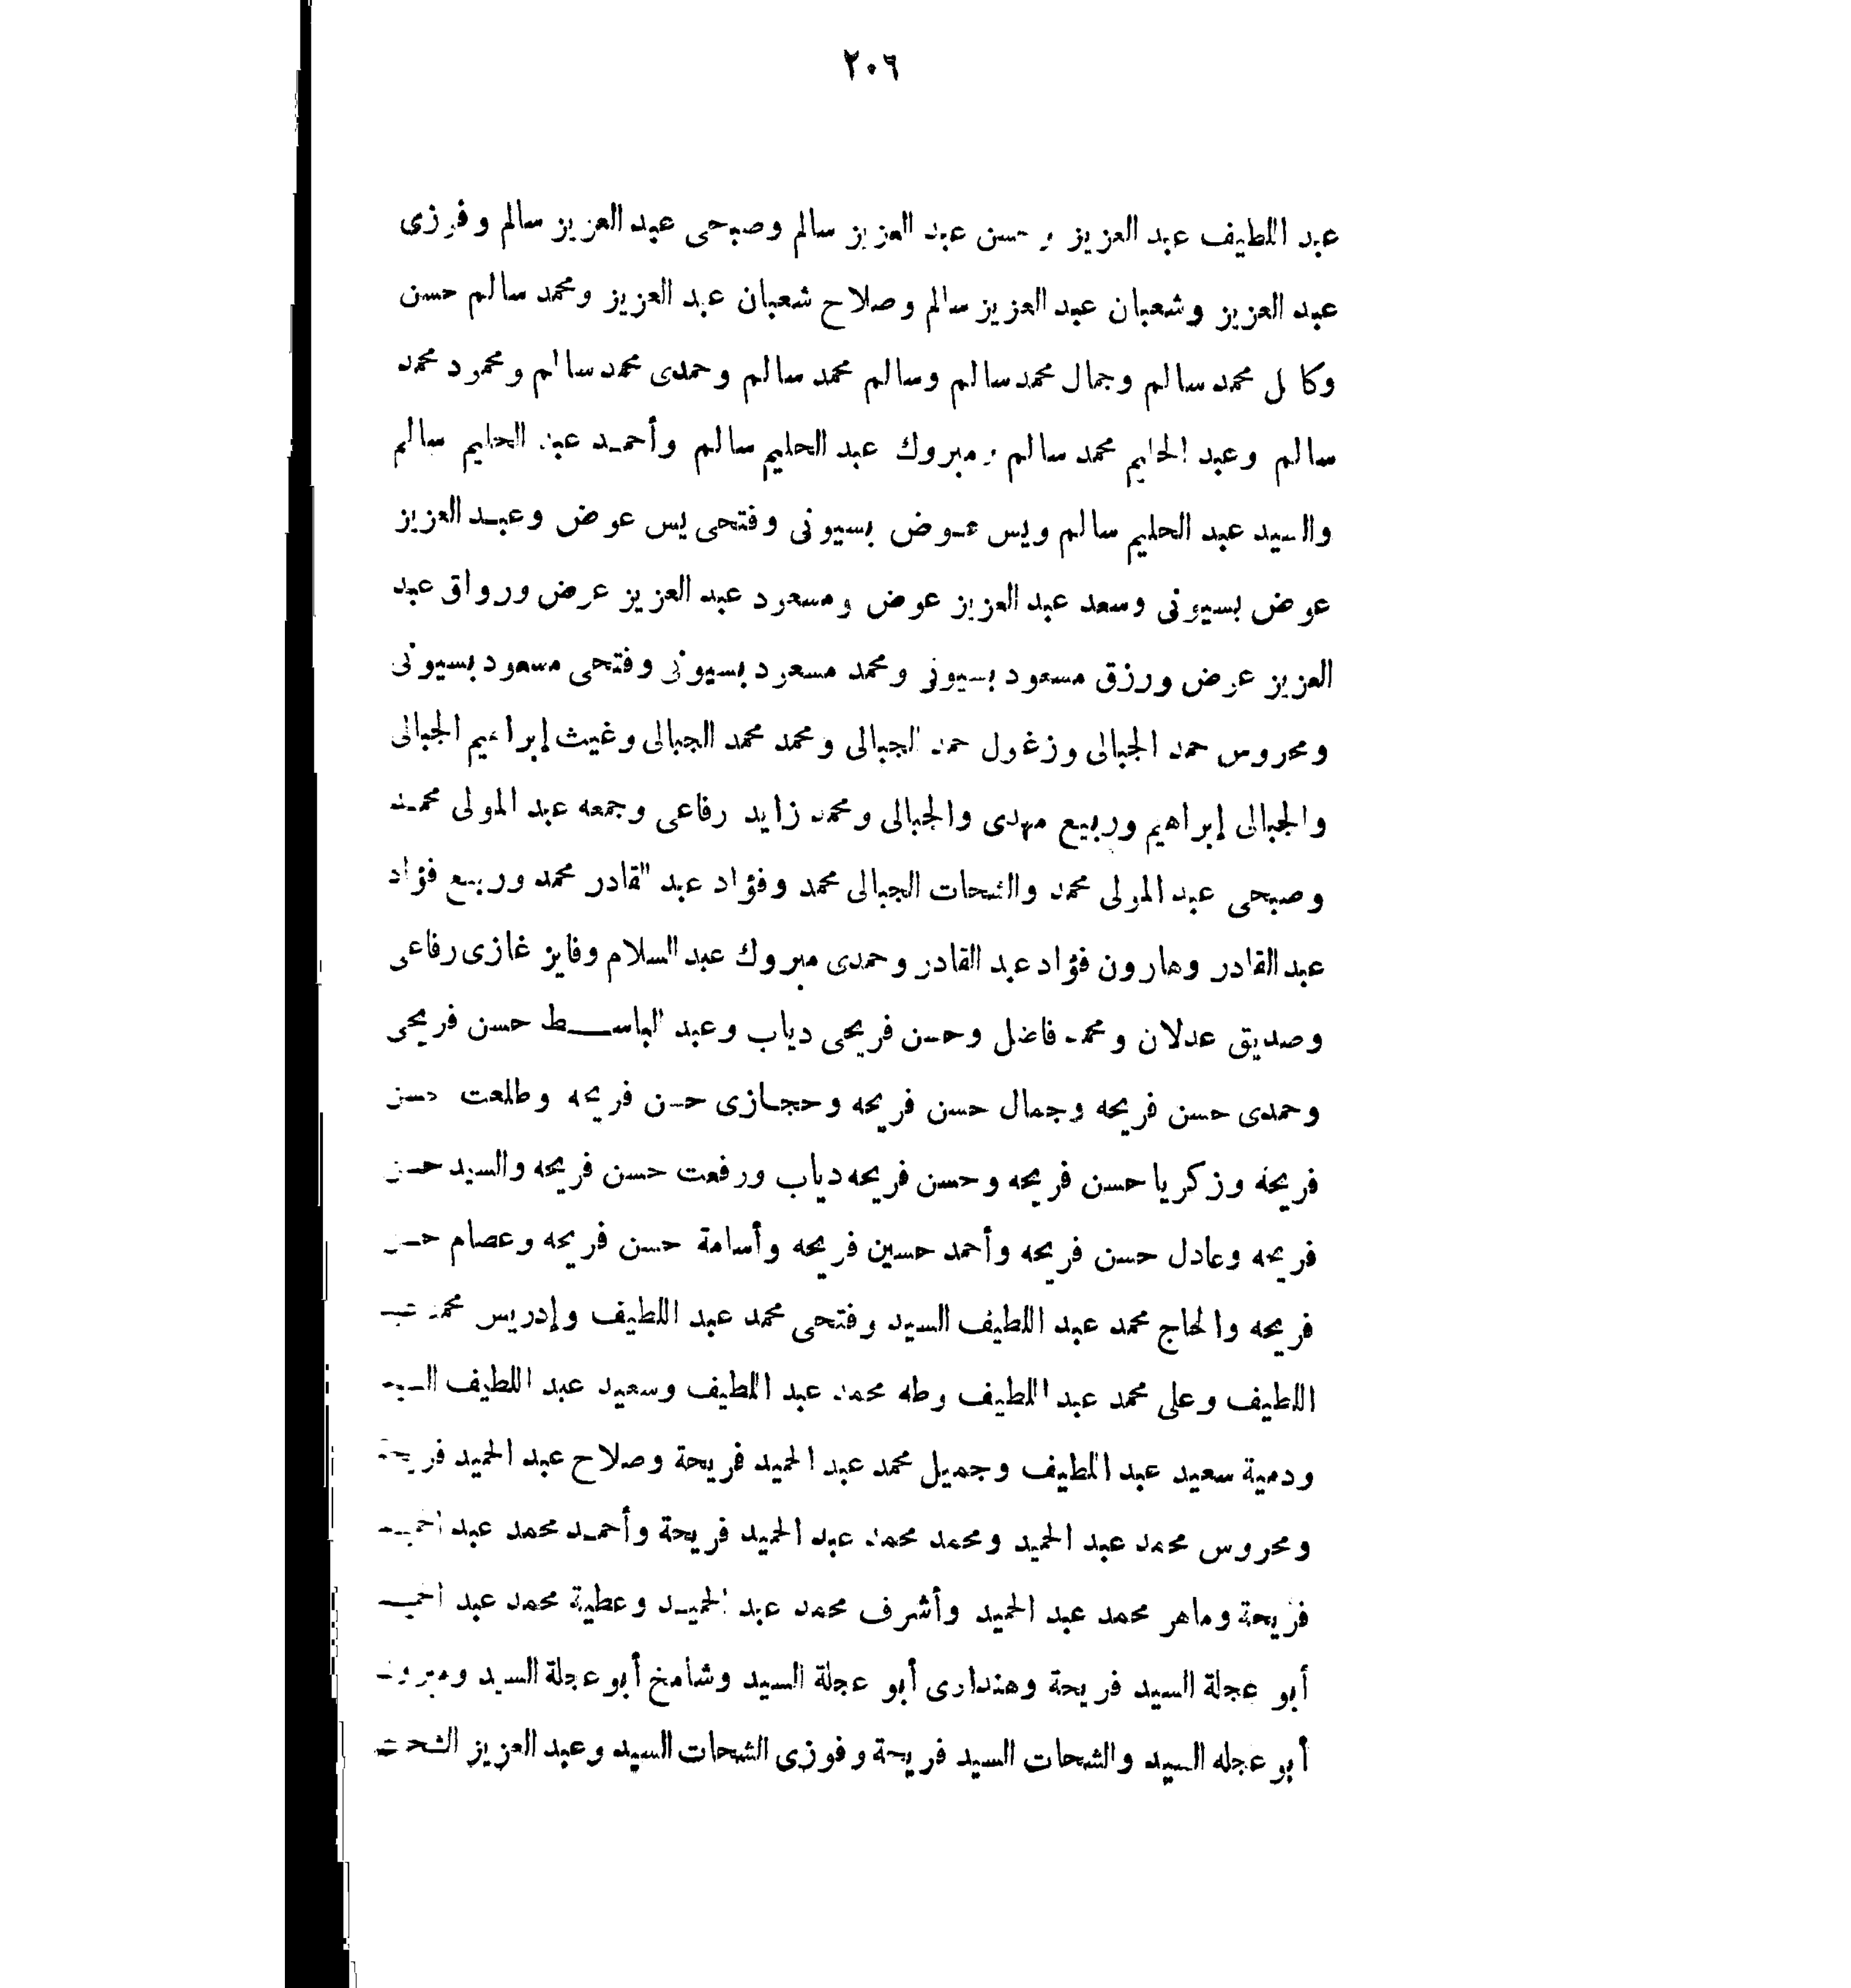 ٢٠٦
عبد اللطيف عبد العزيز وحسن عبد العزيز سالم وصبحى عبد العزيز سالم وفوزى
عبد العزيز وشعبان عبد العزيز سالم وصلاح شعبان عبد العزيز ومحمد سالم حسن
وكامل محمد سالم وجمال محمد سالم وسالم محمد سالم وحمدى محمد سالم ومحمود محمد
سالم وعبد الحليم محمد سالم ومبروك عبد الحليم سالم وأحمد عبد الحليم سالم
والسيد عبد الحليم سالم ويس عوض بسيونى وفتحى يس عوض وعبد العزيز
عوض بسيونى وسعد عبد العزيز عوض ومسعود عبد العزيز عوض ورواق عبد
العزيز عوض ورزق مسعود بسيونى ومحمد مسعود بسيونى وفتحى مسعود بسيونى
ومحروس حمد الجبالى وزغلول حمد الجبالى ومحمد محمد الجبالى وغيث إبراهيم الجبالى
والجبالى إبراهيم وربيع مهدى والجبالى ومحمد زايد رفاعى وجمعه عبد المولى محمد
وصبحى عبد المولى محمد والشحات الجبالى محمد وفؤاد عبد القادر محمد وربيع فؤاد
عبد القادر وهارون فؤاد عبد القادر وحمدى مبروك عبد السلام وفايز غازى رفاعى
وصديق عدلان ومحمد فاضل وحسن فريحى دياب وعبد الباسط حسن فريحى
وحمدى حسن فريحه وجمال حسن فريحه وحجازى حسن فريحه وطلعت حسن
فريحه وزكريا حسن فريحه وحسن فريحه دياب ورفعت حسن فريحه والسيد حسن
فريحه وعادل حسن فريحه وأحمد حسين فريحه وأسامة حسن فريحه وعصام حسن
فريحه والحاج محمد عبد اللطيف السيد وفتحى محمد عبد اللطيف وإدريس محمد عبد
اللطيف وعلى محمد عبد اللطيف وطه محمد عبد اللطيف وسعيد عبد اللطيف السيد
ودمية سعيد عبد اللطيف وجميل محمد عبد الحميد فريحة وصلاح عبد الحميد فريحة
ومحروس محمد عبد الحميد ومحمد محمد عبد الحميد فريحة وأحمد محمد عبد الحميد
فريحة وماهر محمد عبد الحميد وأشرف محمد عبد الحميد وعطية محمد عبد الحميد
أبو عجلة السيد فريحة وهنداوى أبو عجلة السيد وشامخ أبو عجلة السيد ومبروك
أبو عجله السيد والشحات السيد فريحة وفوزى الشحات السيد وعبد العزيز الشحات